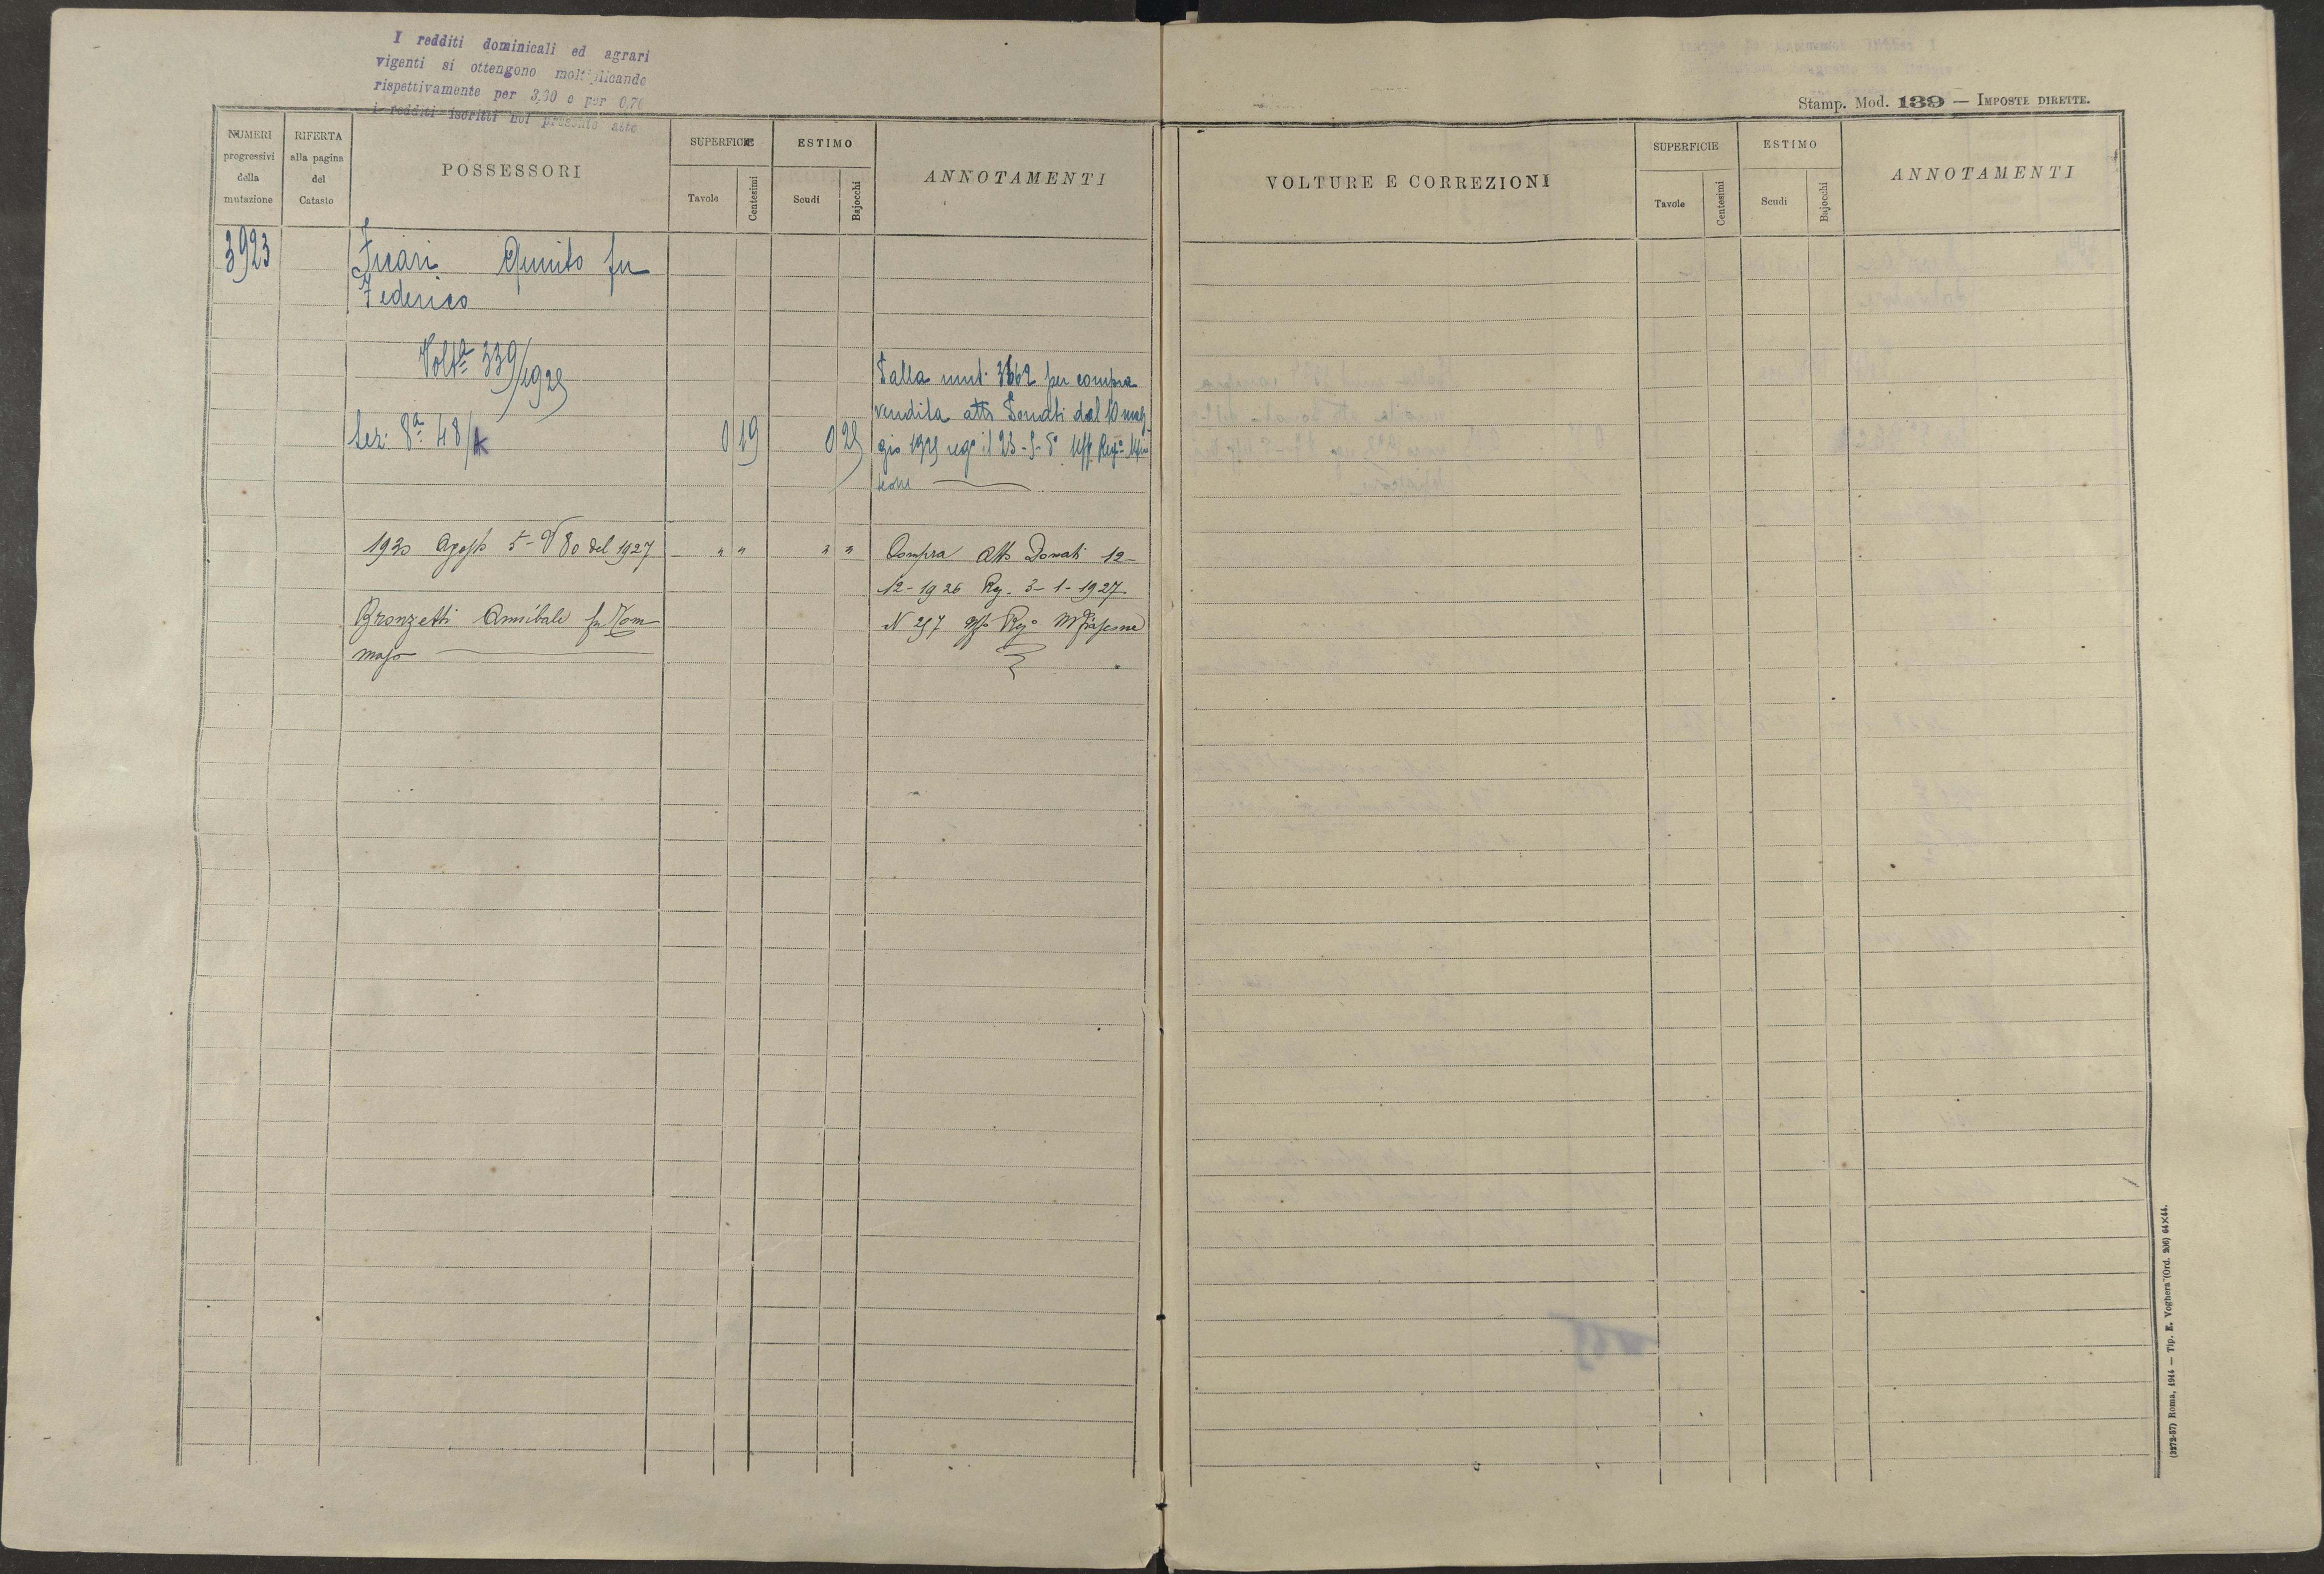 I redditi dominicali ed agrari
vigenti si ottengono moltiplicando
rispettivamente per 3,30 e per 0,70
i redditi iscritti nel presente atto
Stamp. Mod. 139 — IMPOSTE DIRETTE.
NUMERI progressivi della mutazione
RIFERTA alla pagina del Catasto
POSSESSORI
SUPERFICIE
Tavole
Centesimi
ESTIMO
Scudi
Bajocchi
ANNOTAMENTI
VOLTURE E CORREZIONI
SUPERFICIE
Tavole
Centesimi
ESTIMO
Scudi
Bajocchi
ANNOTAMENTI
3923
fu
Federico
Volta 339/1925
Dalla mut. 3662 per compra
vendita atto Donati dal 10 mag
Sez. 8a 48/A 0 19 0 25 gio 1925 reg° il 23-5-5° Uff Reg°
1930 Agosto 5 - V 80 del 1927 " " " " Compra Atto Donati 12-
12-1926 Reg. 3-1-1927
Bronzetti Annibale fu Tom N 257 Uffo Rego
maso
(3272-57) Roma, 1914 — Tip. E. Voghera (Ord. 206) 64×44.